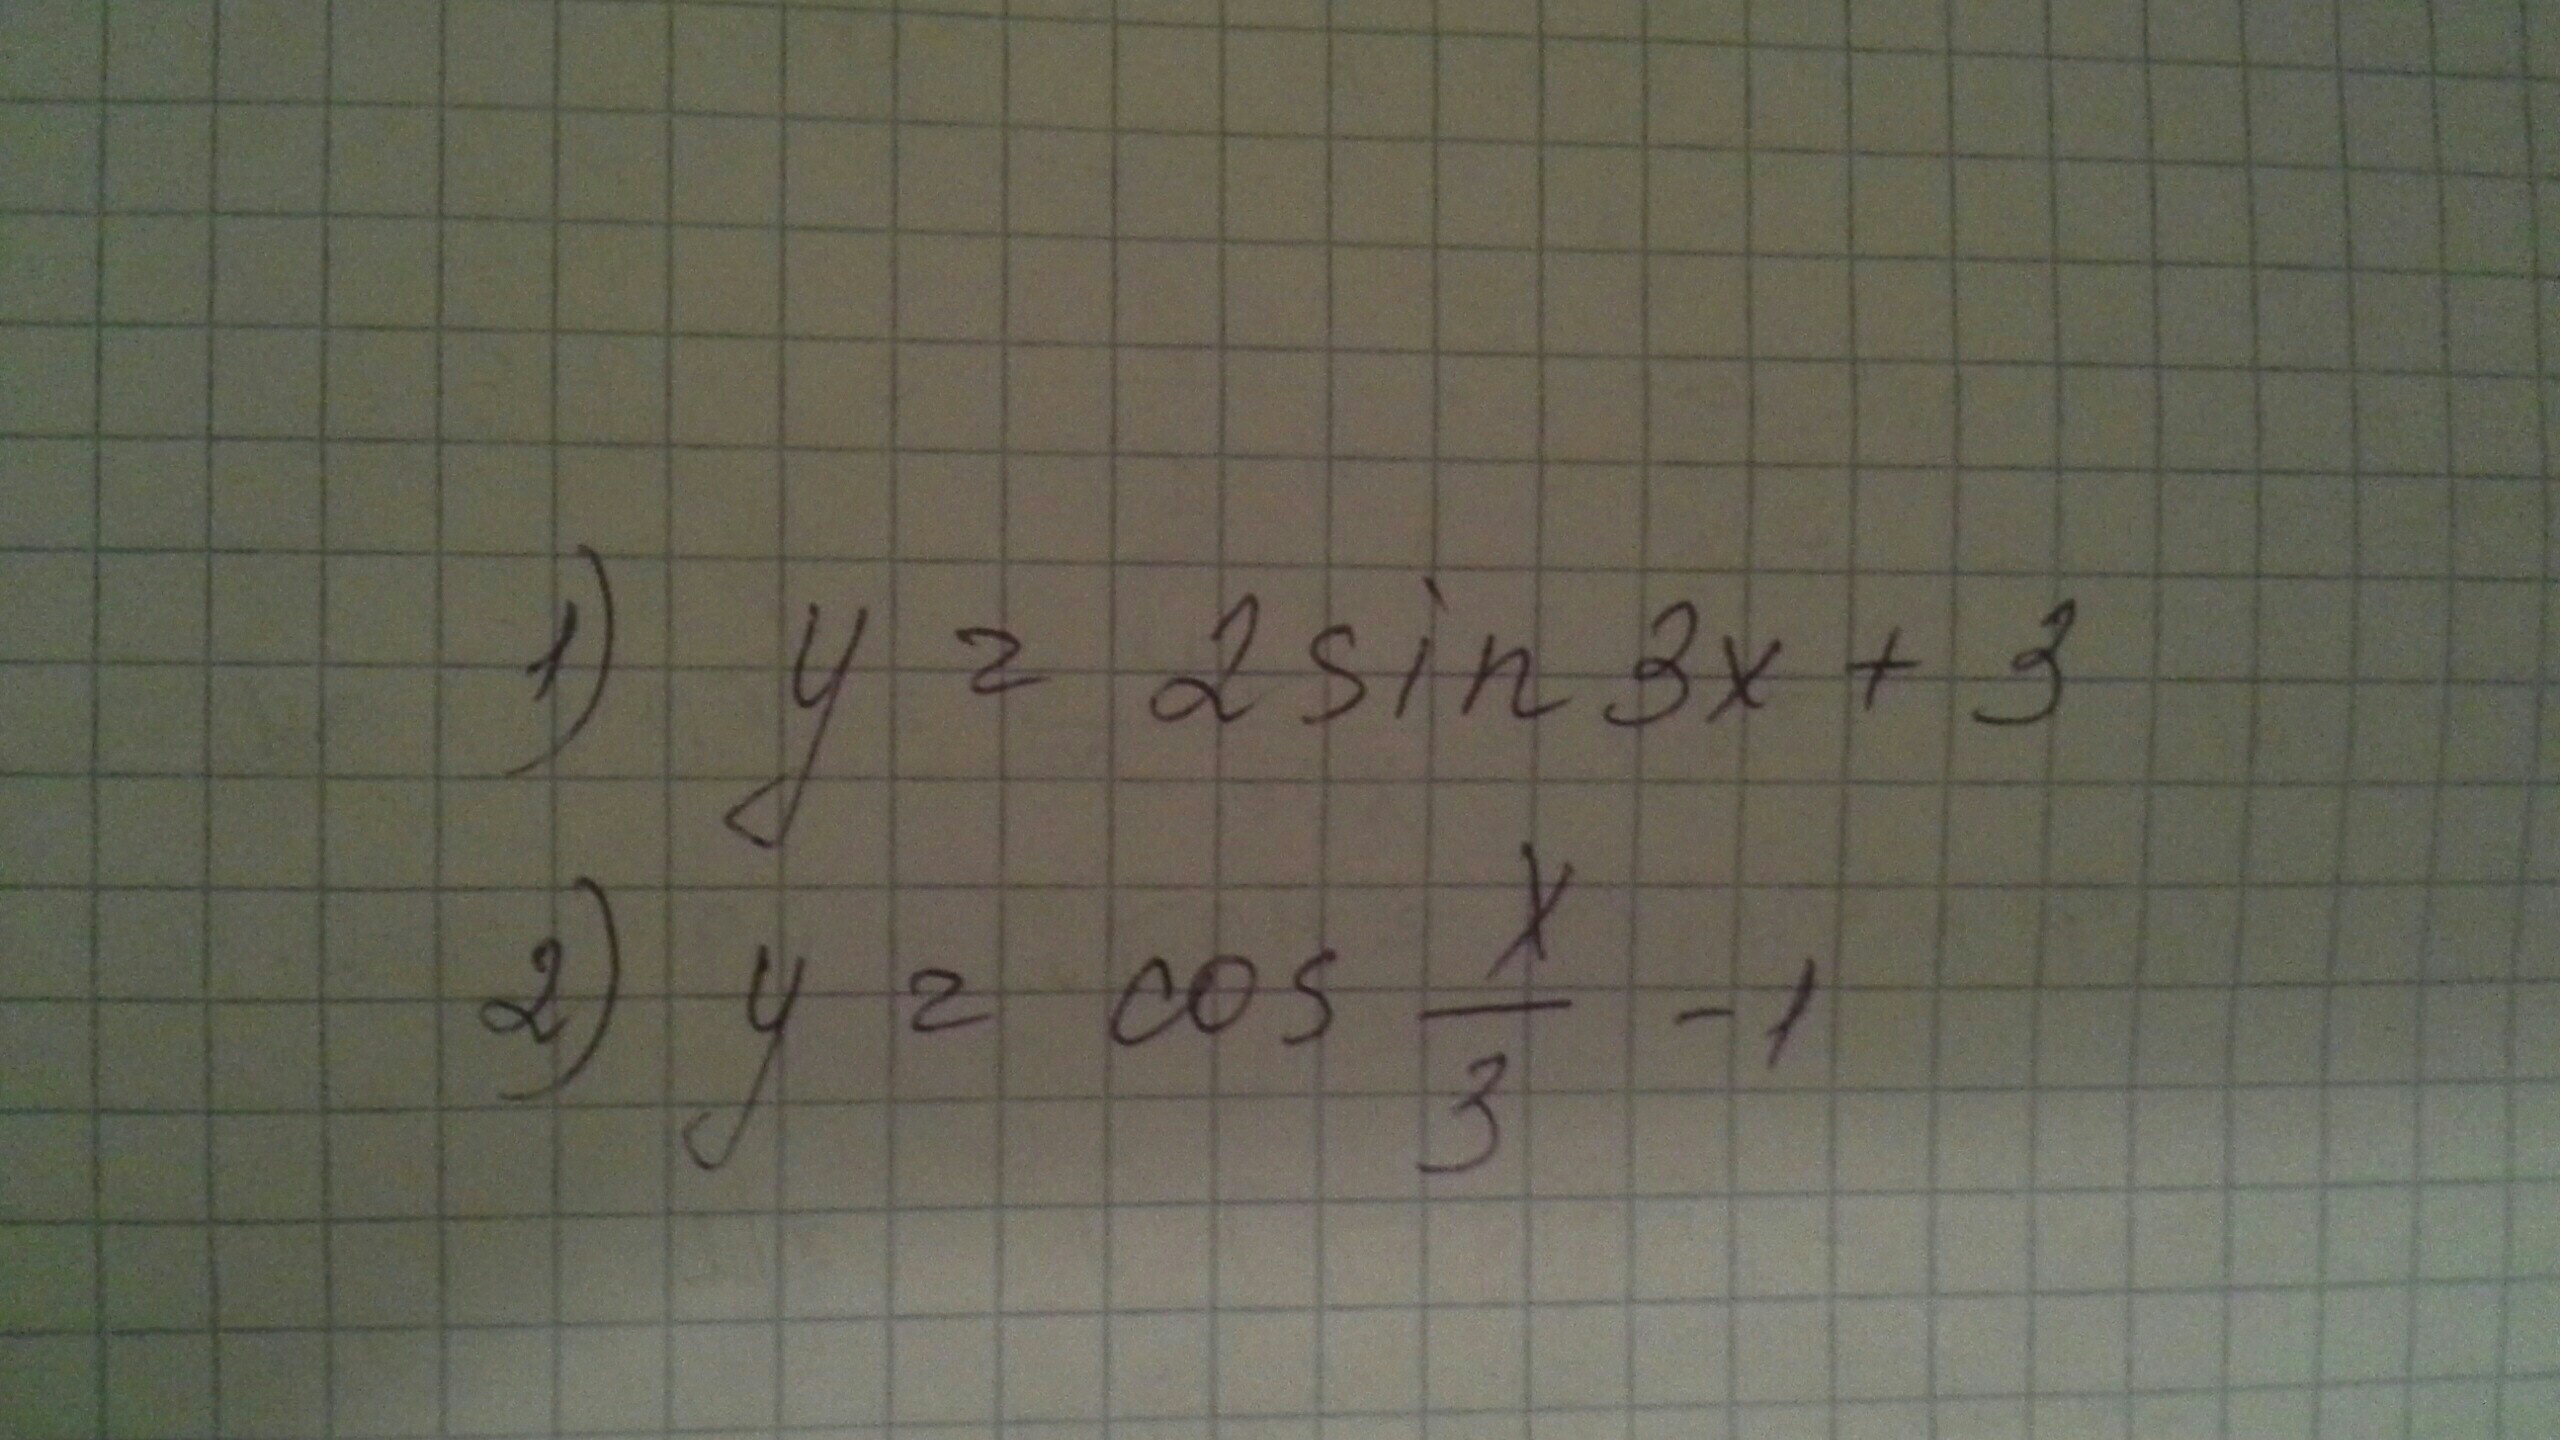 1) y = 2 sin 3x + 3
2) y = cos x/3 - 1